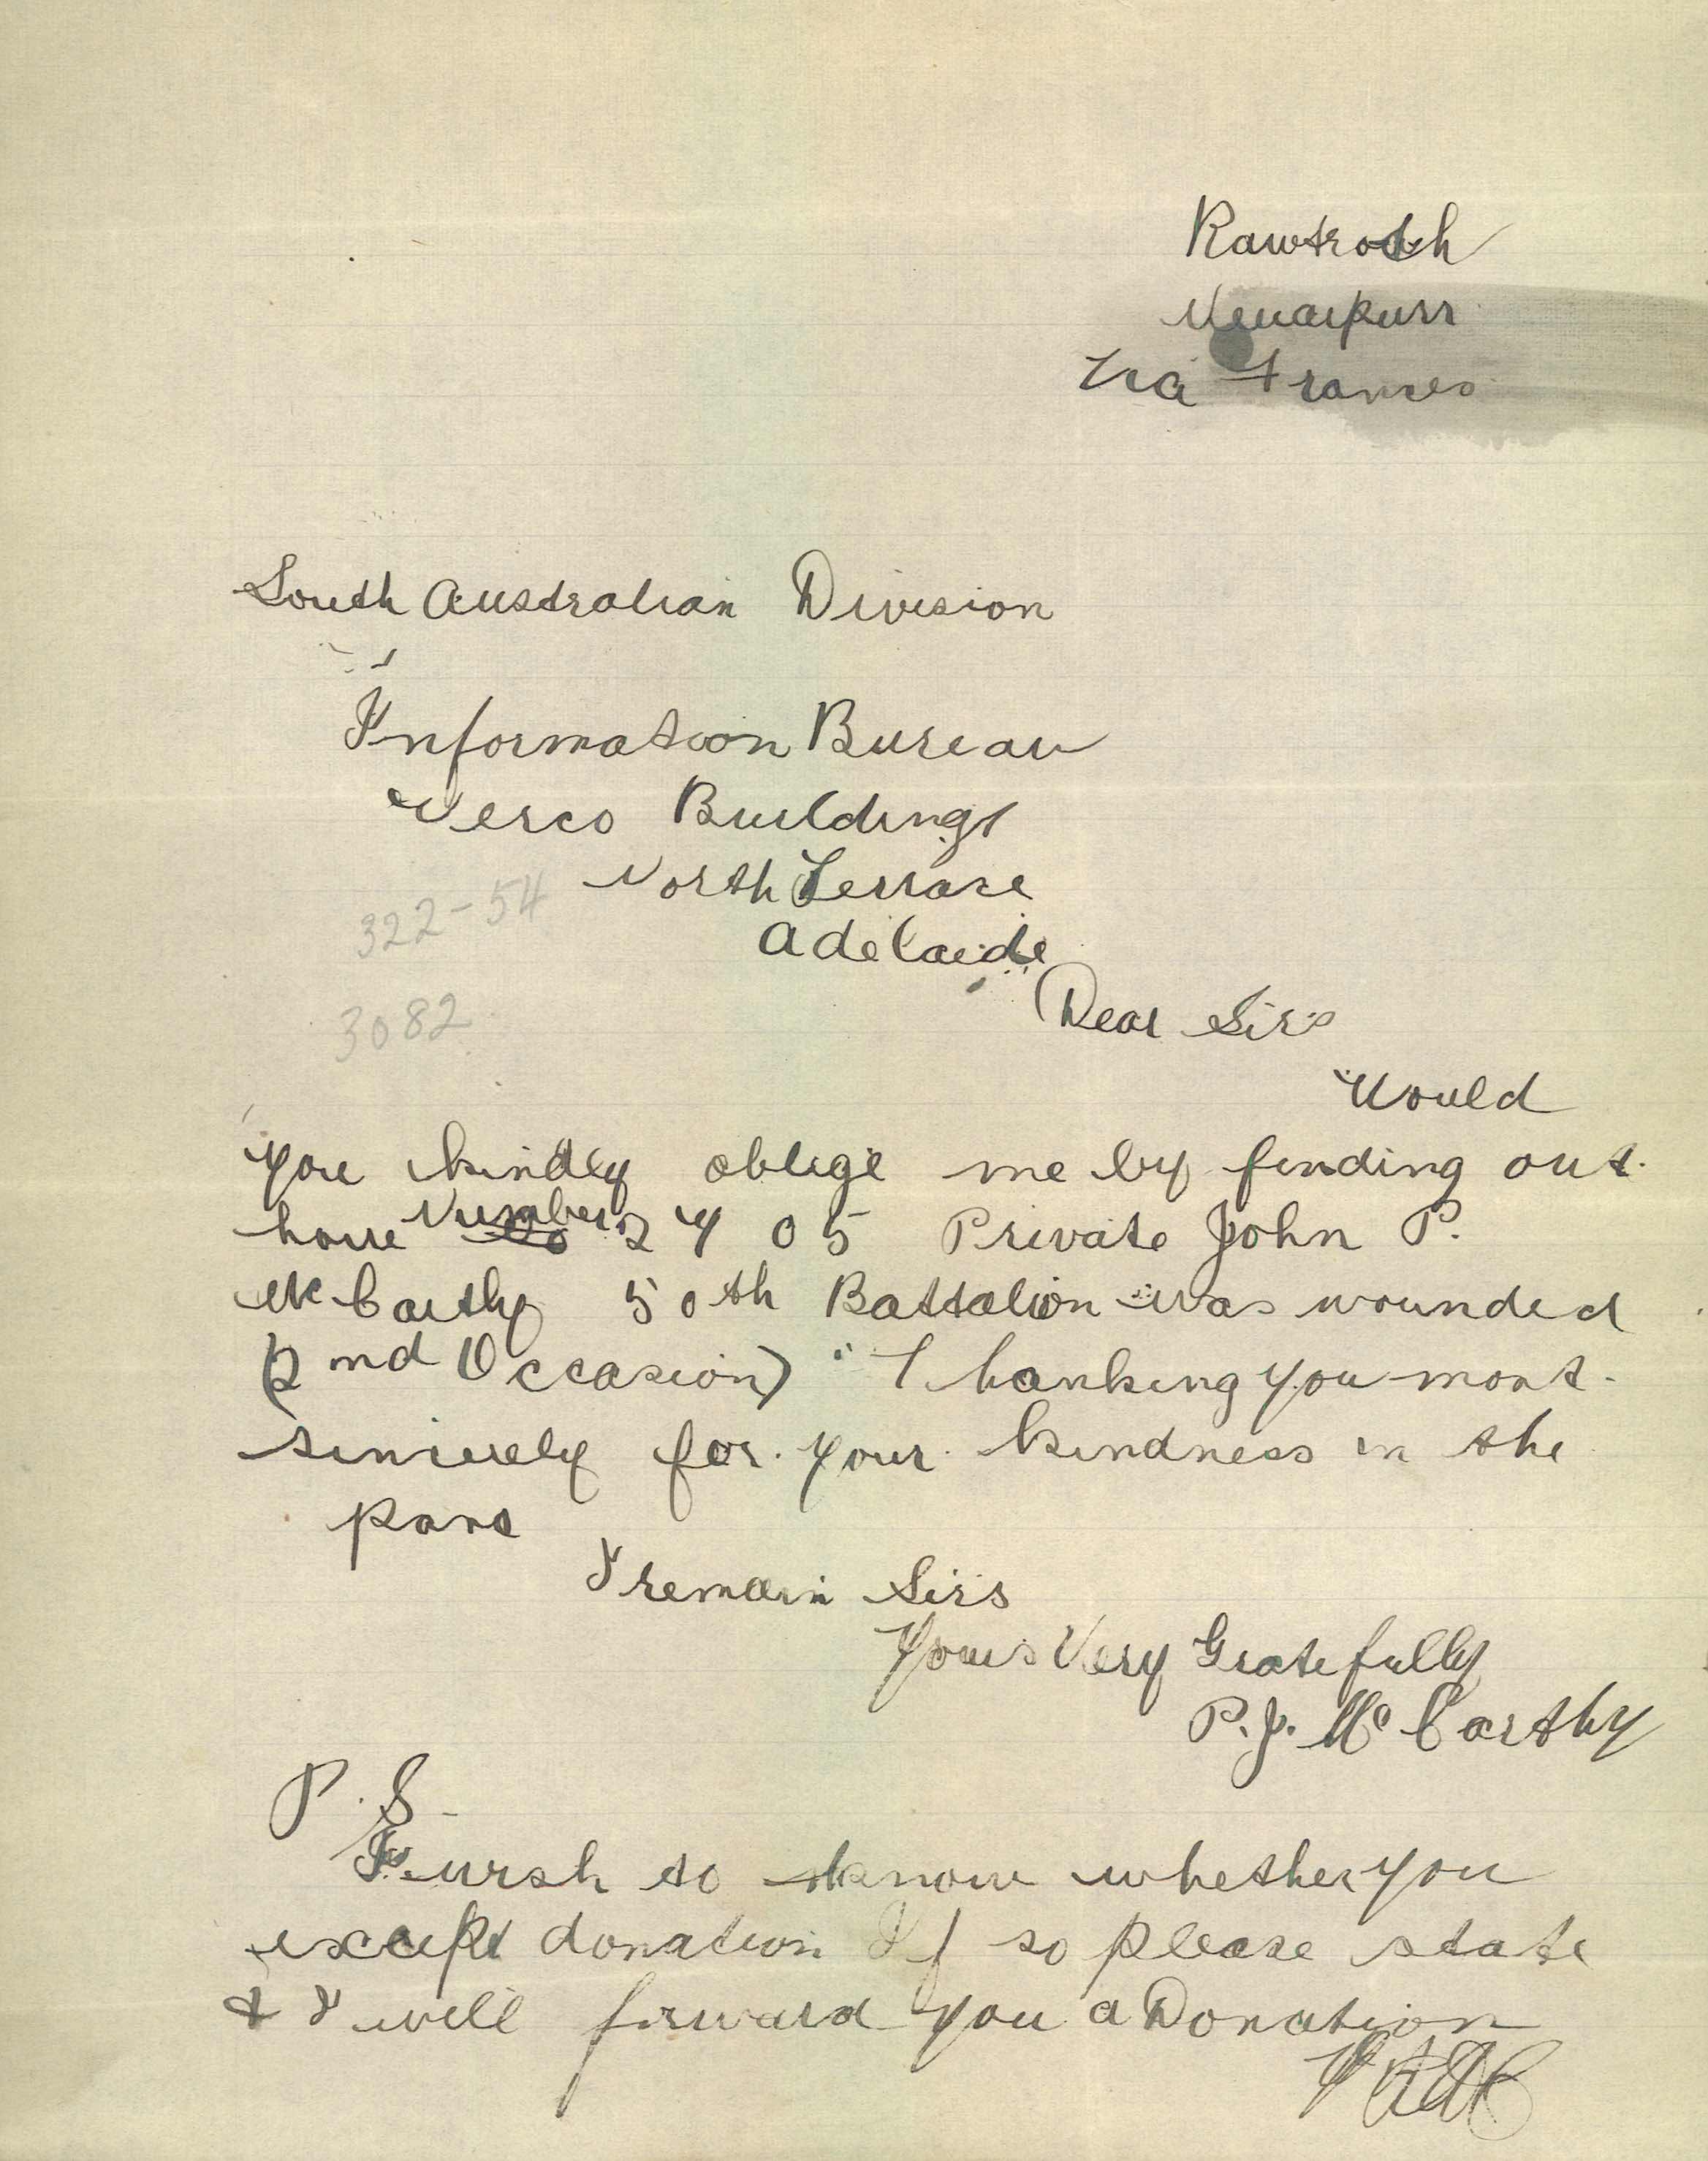 Rawtroth
Neuarpurr
Via Frances
South Australian Division
Information Bureau
Verco Buildings
North Terrace
Adelaide
322-54
3082
Dear Sirs
Would
you kindly oblige me by finding out
how Number 2705 Private John P.
McCarthy 50th Battalion was wounded
(2nd Occasion) Thanking you most
sincerely for your kindness in the
past
I remain Sirs
Yours Very Gratefully
P.J. McCarthy
P.S.
I wish to know whether you
except donation If so please state
& I will forward you a Donation